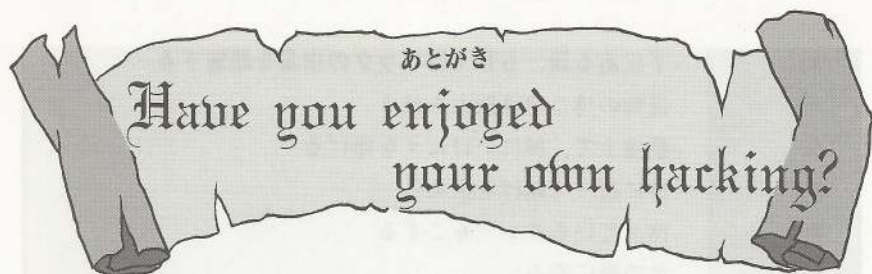 あとがき
Have you enjoyed
your own hacking?